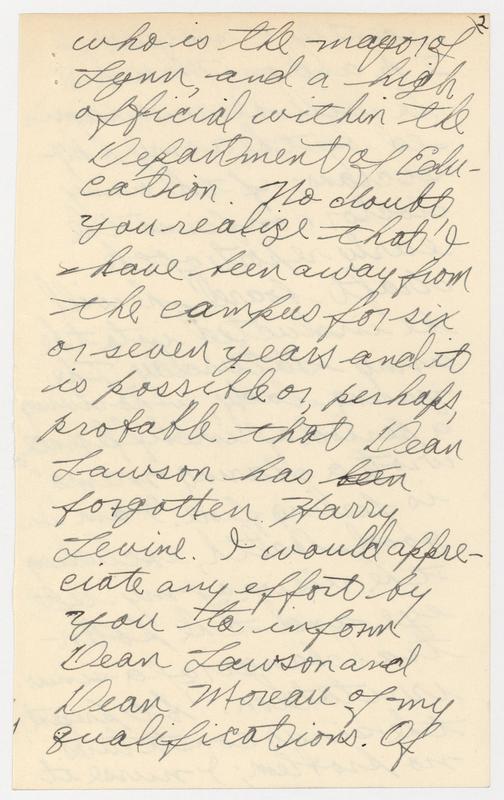 2
who is the mayor of
Lynn, and a high
official within the
Department of Edu-
cation. No doubt
you realize that I
have been away from
the campus for six
or seven years and it
is possible or, perhaps,
probable that Dean
Lawson has been
forgotten Harry
Levine. I would appre-
ciate any effort by
you to inform
Dean Lawson and
Dean Moreau of my
qualifications. Of